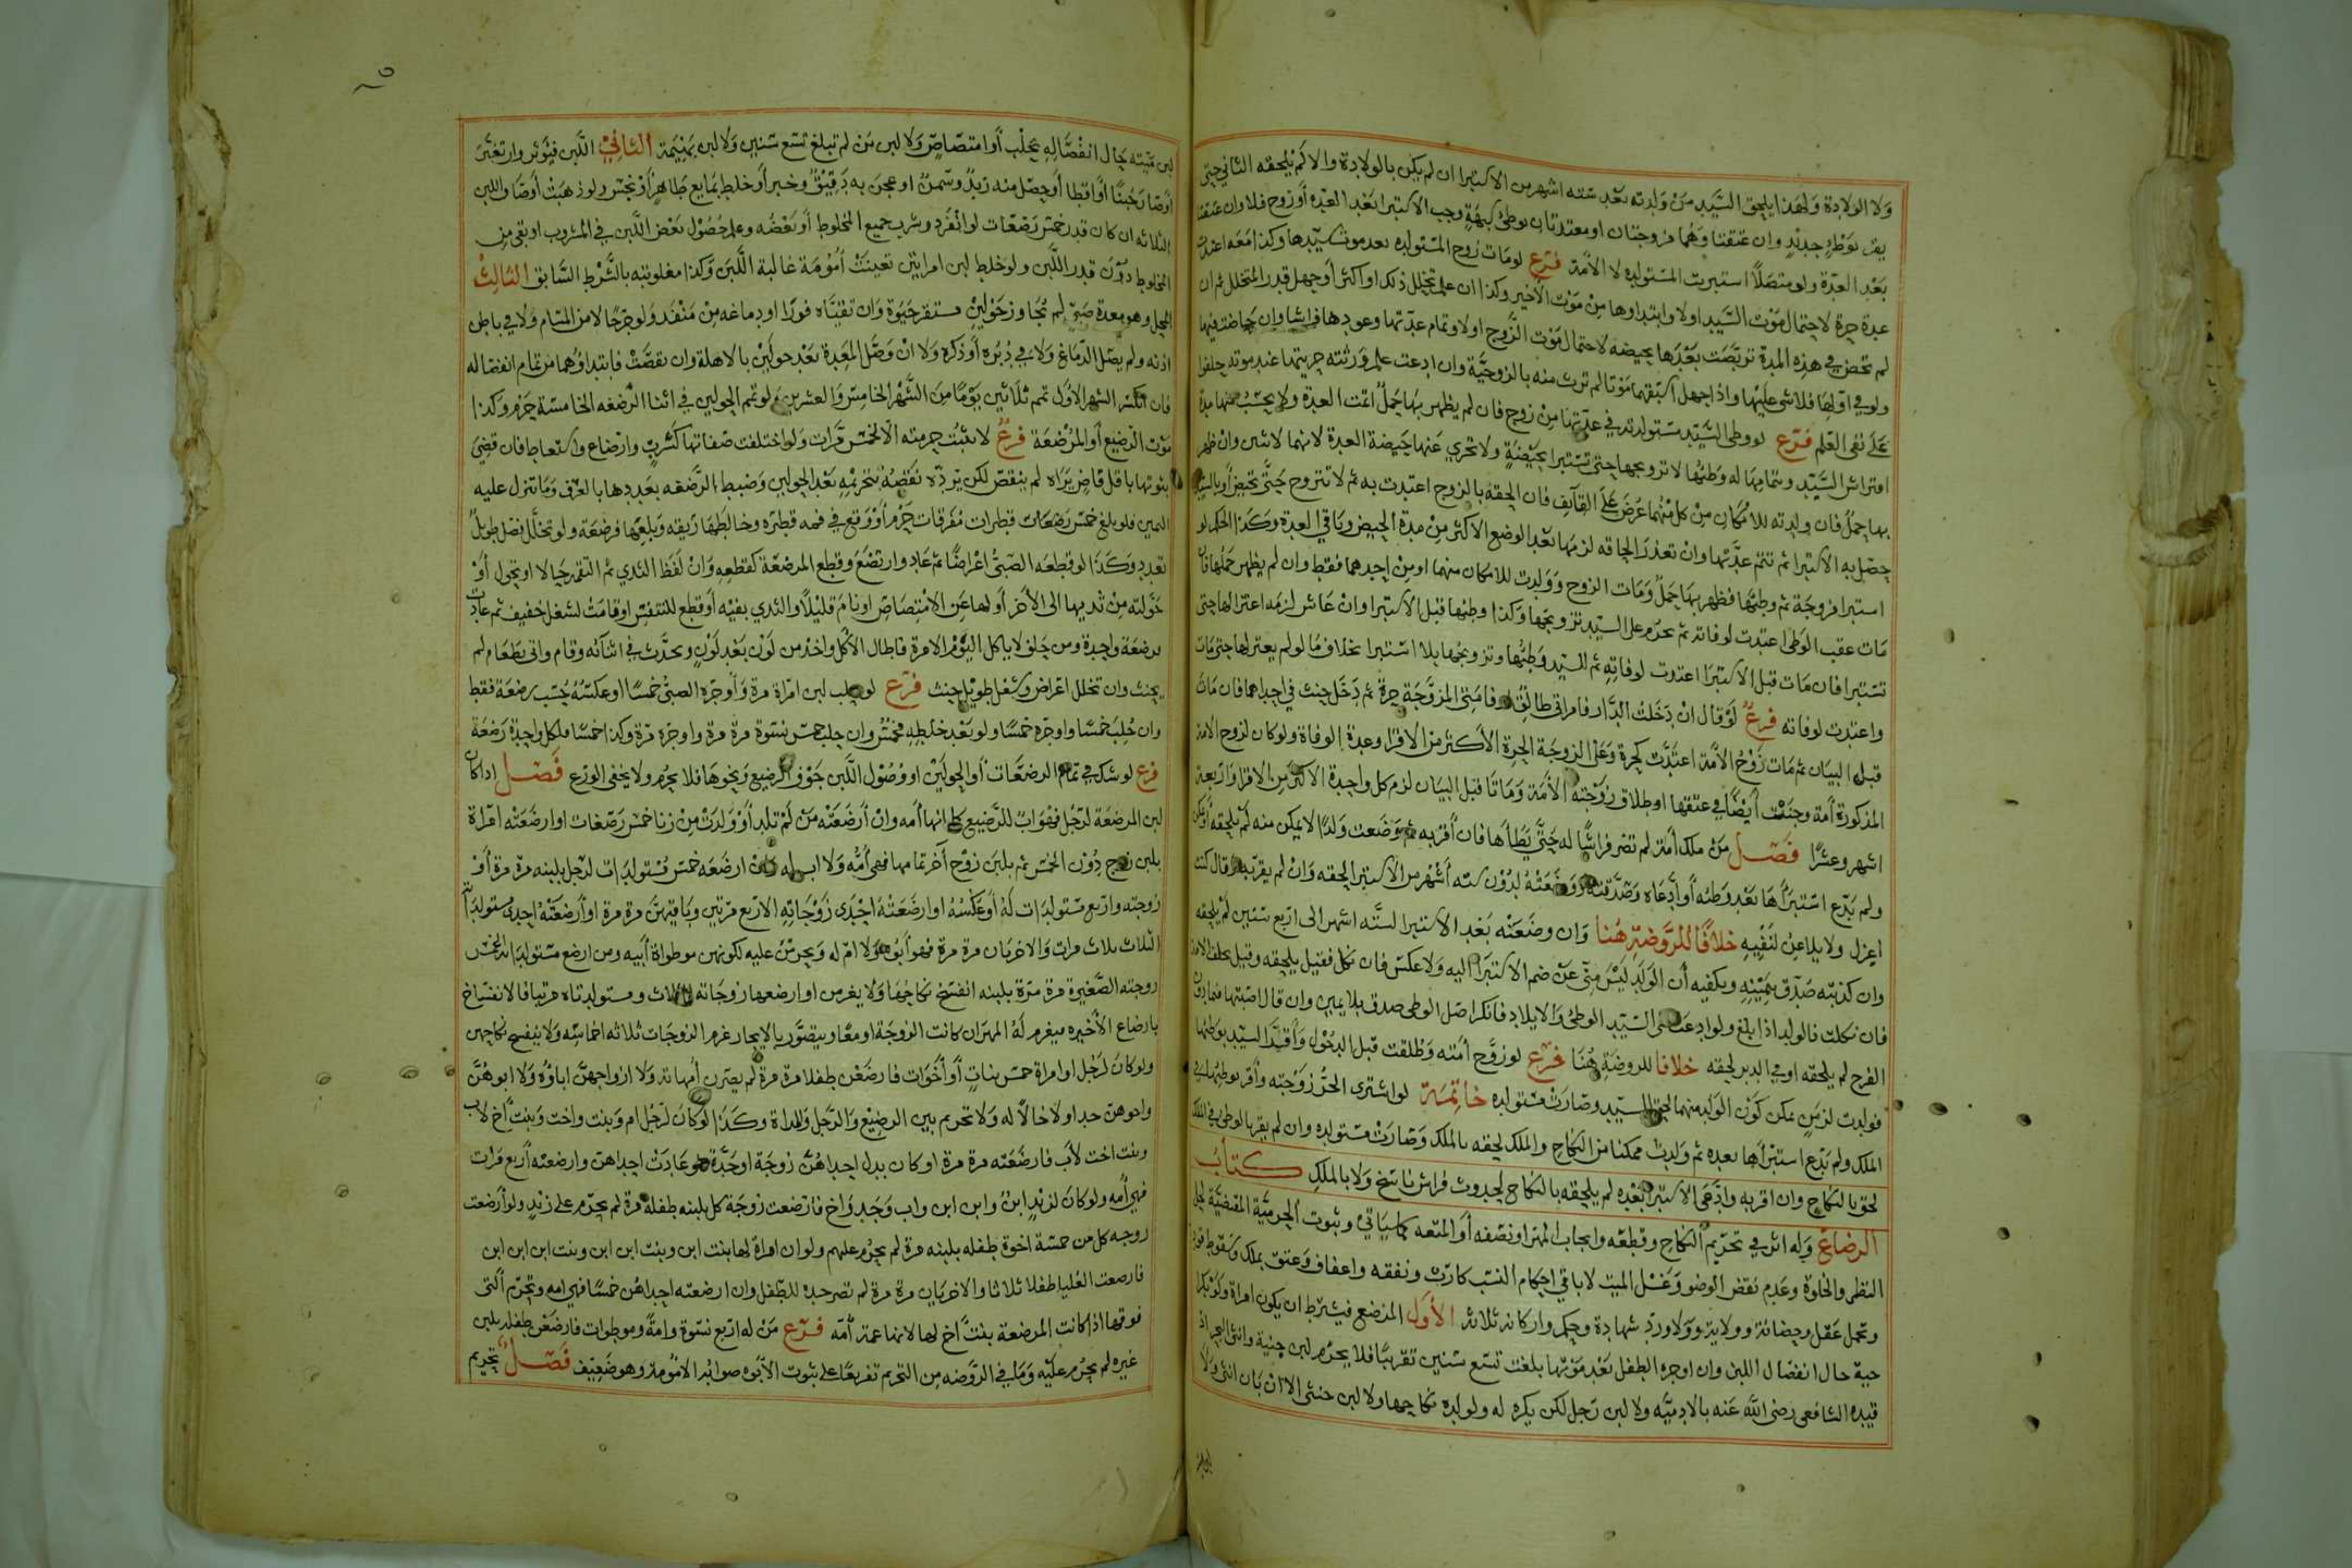 ولا الولادة ولهذا يلحق السيد من ولدته بعد ستة اشهر من الاستبرا ان لم يكن بالولادة والا لم يلحقه الثاني حتى
يقر بوطء جديد وان عتقتا وهما مزوجتان او معتدتان بوطئ شبهة وجب الاستبرا بعد العدة او زوج فلا وان عتقتا
بعد العدة ولو متصلا استبرت المستولده لا الامة فرع لو مات زوج المستولده بعد موت سيدها وكذا معه اعتدت
عدة حرة لاحتمال موت السيد اولا وابتداوها من موت الاخير وكذا ان علم تخلل ذلك او اكثر او جهل قدر المتخلل ثم ان
لم تحض في هذه المدة تربصت بعدها بحيضه لاحتمال موت الزوج اولا وتمام عدتها وعودها فراشا وان حاضت فيها
ولو في اولها فلا شي عليها واذا جهل اسبقهما موتا لم ترث منه بالزوجية وان ادعت علم ورثته حريتها عند موته حلفوا
على نفي العلم فرع لو وطئ السيد مستولدته في عدتها من زوج فان لم يظهر بها حمل اتمت العدة ولا يحسب منها مدة
افتراش السيد وبتمامها له وطئها لا تزويجها حتى تستبرا بحيضة ولا تجزي عنها حيضة العدة لانهما لاثنين وان ظهر
بها حمل فان ولدته للامكان من كل منهما عرض على القايف فان الحقه بالزوج اعتدت به ثم لا تتزوج حتى تحيض او بالسيد
حصل به الاستبرا ثم تتم عدتها وان تعذر الحاقه لزمها بعد الوضع الاكثر من مدة الحيض وباقي العدة وكذا الحكم لو
استبرا مزوجة ثم وطئها فظهر بها حمل ومات الزوج وولدت للامكان منهما او من احدهما فقط وان لم يظهر حملها فان
مات عقب الوطئ اعتدت لوفاته ثم تحرم على السيد تزويجها وكذا وطئها قبل الاستبرا وان عاش لزمه اعتزالها حتى
تستبرا فان مات قبل الاستبرا اعتدت لوفاته ثم للسيد وطئها وتزويجها بلا استبرا بخلاف ما لو لم يعتزلها حتى مات
واعتدت لوفاته فرع لو قال ان دخلت الدار فامراتي طالق والا فامتي المزوجة حرة ثم دخل حنث في احداهما فان مات
قبل البيان ثم مات زوج الامة اعتدت كحرة وعلى الزوجة الحرة الاكثر من الاقرا وعدة الوفاة ولو كان لزوج الامة
المذكورة امة وحنث ايضا في عتقها او طلاق زوجته الامة وماتا قبل البيان لزم كل واحدة الاكثر من الاقرا واربعة
اشهر وعشرا فصل من ملك امة لم تصر فراشا له حتى يطاها فان اقر به ثم وضعت ولدا لا يمكن منه لم يلحقه او يمكن
ولم يدع استبراها بعد وطئه او ادعاه وصدقته ووضعته لدون سته اشهر من الاستبرا لحقه وان لم يقر به وقال كنت
اعزل ولا يلاعن لنفيه خلافا للروضة هنا وان وضعته بعد الاستبرا لستة اشهر الى اربع سنين لم يلحقه
وان كذبته صدق بيمينه ويكفيه ان الولد ليس مني عن ضم الاستبرا اليه ولا عكس فان نكل فقيل يلحقه وقيل بحلف الامة
فان نكلت فالولد اذا بلغ ولو ادعت على السيد الوطئ والايلاد فانكر اصل الوطى صدق بلا يمين وان قال اصبتها فيما دون
الفرج لم يلحقه او في الدبر لحقه خلافا للروضة هنا فرع لو زوج امته وطلقت قبل الدخول واقر السيد بوطئها
فولدت لزمن يمكن كون الولد منهما لحق السيد وصارت مستولده خاتمة لو اشترى الحر زوجته واقر بوطئها في
الملك ولم يدع استبراها بعده ثم ولدت ممكنا من النكاح والملك لحقه بالملك وصارت مستولده وان لم يقر بالوطئ في الملك
لحق بالنكاح وان اقر به وادعى الاستبرا بعده لم يلحقه بالنكاح لحدوث فراش ناسخ ولا بالملك كتاب
الرضاع وله اثر في تحريم النكاح وقطعه وايجاب المهر او نصفه او المتعه كما سياتي وثبوت المحرمية المقتضية لحل
النظر والخلوة وعدم نقض الوضو وغسل الميت لا باقي احكام النسب كارث ونفقه واعفاف وعتق بملك وسقوط قود
وتحمل عقل وحضانة وولاية وولا ورد شهادة وحكم واركانه ثلاثة الاول المرضع فيشترط ان يكون امراة ولو بكرا
حية حال انفصال اللبن وان اوجره الطفل بعد موتها بلغت تسع سنين تقريبا فلا يحرم لبن جنية وانثى اذ
قيده الشافعي رضي الله عنه بالادمية ولا لبن رجل لكن يكره له ولولده نكاحها ولا لبن خنثى الا ان بان انثى ولا
لبن ميتة حال انفصاله بحلب او امتصاص ولا لبن من لم تبلغ تسع سنين ولا لبن بهيمة الثاني اللبن فيؤثر وان تغير
اوصار جبنا او اقطا او حصل منه زبد وسمن او عجن به دقيق وخبز او خلط بمايع طاهر او نجس ولو ذهبت اوصاف اللبن
الثلاثه ان كان قدر خمس رضعات لو انفرد وشرب جميع المخلوط او بعضه وعلم حصول بعض اللبن في المشروب او بقي من
المخلوط دون قدر اللبن ولو خلط لبن امراتين تعينت امومة غالبة اللبن وكذا مغلوبته بالشرط السابق الثالث
المحل وهو معدة صبي لم تجاوز حولين مستقر حيوة وان تقيأه فورا او دماغه من منفذ ولو جرحا لا من المسام ولا في باطن
اذنه ولم يصل الدماغ ولا في دبره او ذكره ولا ان وصل المعدة بعد حولين بالاهلة وان نقصت فابتداؤهما من تمام انفصاله
فان انكسر الشهر الاول تمم ثلاثين يوما من الشهر الخامس والعشرين ولو تم الحولين في اثنا الرضعه الخامسة حرم وكذا
موت الرضيع او المرضعة فرع لا تثبت حرمته الا بخمس مرات ولو اختلفت صفاتها كشرب وارضاع واستعاط فان قضى
بثوتها باقل قاض يراه لم ينقض لكن يرده نقضه بتحريمه بعد الحولين وضبط الرضعه بعددها بالعرف وما تنزل عليه
اليمين فلو بلغ خمس رضعات قطرات مفرقات حرم او وقع في فمه قطره وخالطها ريقه وبلعها فرضعة ولو تخلل فصل طويل
تعدد وكذا لو قطعه الصبي اعراضا ثم عاد وارتضع وقطع المرضعة كقطعه وان لفظ الثدي ثم التقمه حالا او تحول او
حولته من ثديها الى الاخر او لها عن الامتصاص او نام قليلا والثدي بفيه او قطع للتنفس او قامت لشغل خفيف ثم عادت
فرضعة واحدة ومن حلف لا ياكل اليوم الا مرة فاطال الاكل واخذ من لون بعد لون وتحدث في اثنائه وقام واتى بطعام لم
يحنث وان تخلل اعراض وشغل طويل حنث فرع لو حلب لبن امراة مرة واوجره الصبي خمسا او عكسه حسب رضعة فقط
وان حلب خمسا واوجره خمسا ولو بعد خلطه فخمس وان حلب خمس نسوة مرة مرة واوجره مرة وكذا خمسا فلكل واحدة رضعة
فرع لو شك في تمام الرضعات او الحولين او وصول اللبن جوف الرضيع ونحوها فلا يحرم ولا يخفى الورع فصل اذا كان
لبن المرضعة لرجل فهو اب للرضيع كما انها امه وان ارضعته من لم تلد او ولدت من زنا خمس رضعات او ارضعته امراة
بلبن زوج دون الخمس ثم بلبن زوج آخر تمامها فهي امه ولا اب له وان ارضعه خمس مستولدات لرجل بلبنه مرة مرة او
زوجته واربع مستولدات له او عكسه او ارضعته احدى زوجاته الاربع مرتين وباقيهن مرة مرة او ارضعته احدى مستولداته
الثلاث ثلاث مرات والاخريان مرة مرة فهو ابوه ولا ام له ويحرمن عليه لكونهن موطواة ابيه ومن ارضع مستولداته الخمس
زوجته الصغيرة مرة مرة بلبنه انفسخ نكاحها ولا يغرمن او ارضعها زوجاته الثلاث ومستولدتاه مرتبا فالانفساخ
بارضاع الاخيره فيغرم له المهر ان كانت الزوجة او معا ويتصور بالايجار غرم الزوجات ثلاثه اخماسه ولا ينفسخ نكاحهن
ولو كان لرجل او امراة خمس بنات او اخوات فارضعن طفلا مرة مرة لم يصرن امهاته ولا ازواجهن اباؤه ولا ابوهن
واخوهن جدا ولا خالا له ولا تحريم بين الرضيع والرجل والمراة وكذا لو كان لرجل ام وبنت واخت وبنت اخ لاب
وبنت اخت لاب فارضعته مرة مرة او كان بدل احداهن زوجة او جدة ولو عادت احداهن وارضعته اربع مرات
فهي امه ولو كان لزيد ابن وابن ابن واب وجد واخ فارضعت زوجة كل بلبنه طفلة مرة لم يحرم على زيد ولو ارضعت
زوجه كل من خمسة اخوة طفله بلبنه مرة لم يحرم عليهم ولو ان امراة لها بنت ابن وبنت ابن ابن وبنت ابن ابن ابن
فارضعت العليا طفلا ثلاثا والاخريان مرة مرة لم تصر جدة للطفل وان ارضعته احداهن خمسا فهي امه وتحرم التي
فوقها اذا كانت المرضعة بنت اخ لها لانها عمة امه فرع من له اربع نسوة وامة وموطوات فارضعن طفله بلبن
غيره لم يحرم عليه وما في الروضه من التحريم تفريعا على ثبوت الابوه صوابه الامومة وهو ضعيف فصل تحريم